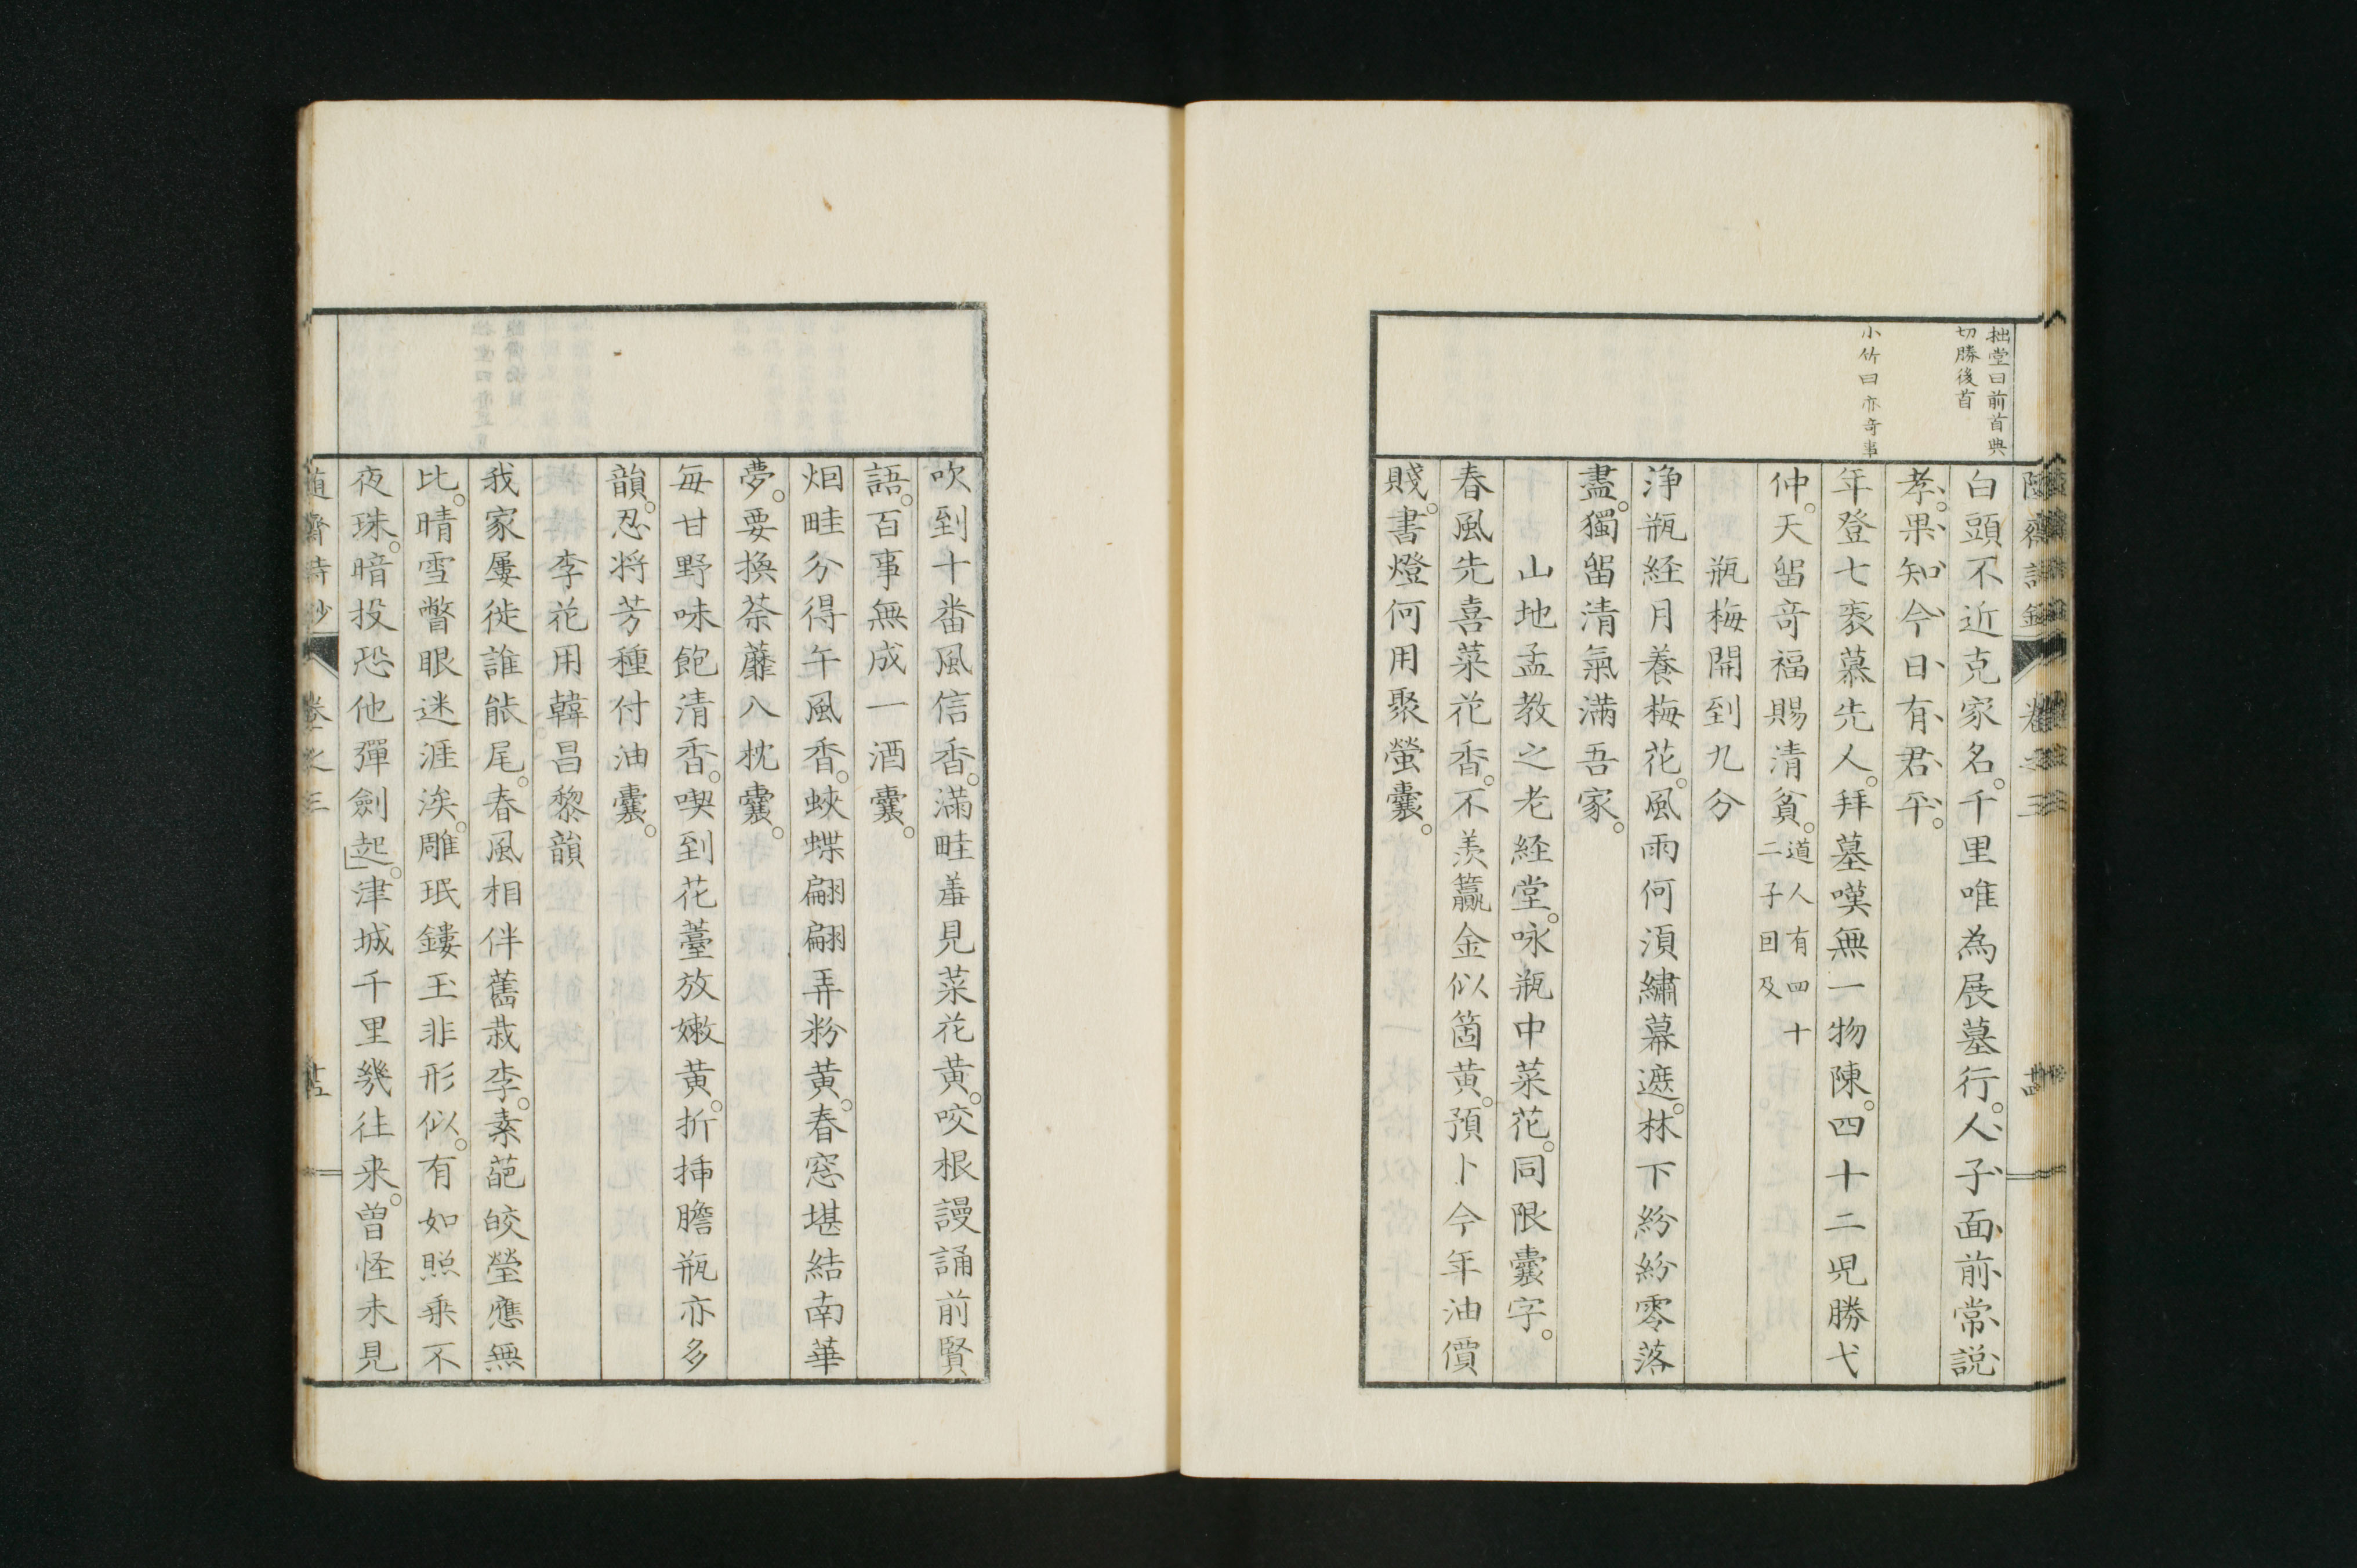 拙堂曰前首典
切勝後首
小竹曰亦奇事
白頭不近克家名。千里唯為展墓行。人子面前常説
孝。果知今日有君平。
年登七袠慕先人。拜墓嘆無一物陳。四十二児勝弋
仲。天留奇福賜清貧。道人有四十
二子囙及
瓶梅開到九分
浄瓶経月養梅花。風雨何湏繡幕遮。林下紛紛零落
盡。獨留清氣滿吾家。
山地孟教之老経堂。咏瓶中菜花。同限囊字。
春風先喜菜花香。不羨籯金似箇黄。預卜今年油價
賤。書燈何用聚螢囊。
吹到十番風信香。滿畦羞見菜花黄。咬根謾誦前賢
語。百事無成一酒囊。
烟畦分得午風香。蛺蝶翩翩弄粉黄。春窓堪結南華
夢。要換荼蘼入枕囊。
毎甘野味飽清香。喫到花薹放嫩黄。折挿膽瓶亦多
韻。忍将芳種付油囊。
李花用韓昌黎韻
我家屢徙誰能尾。春風相伴舊栽李。素葩皎瑩應無
比。晴雪瞥眼迷涯涘。雕珉鏤玉非形似。有如照乗不
夜珠。暗投恐他彈劍起。津城千里幾往来。曽怪未見
随齋詩鈔
卷之三